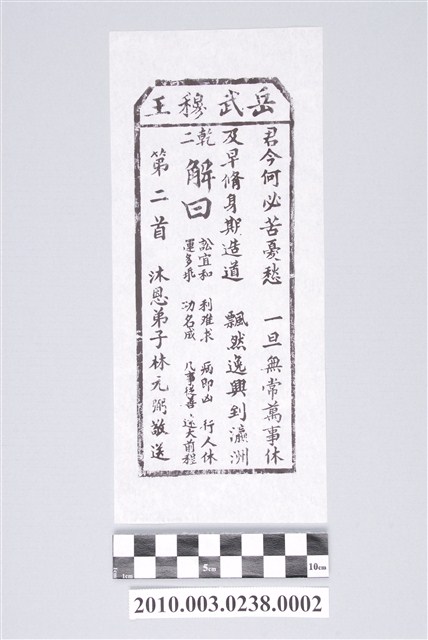 岳武穆王
君今何必苦憂愁　一旦無常萬事休
及早脩身期造道　飄然逸興到瀛洲
乾二
解曰
訟宜和　利难求　病即凶　行人休
運多乖　功名成　凡事從善　远大前程
第二首　沐恩弟子林元弼敬送
1cm 5cm 10cm
2010.003.0238.0002